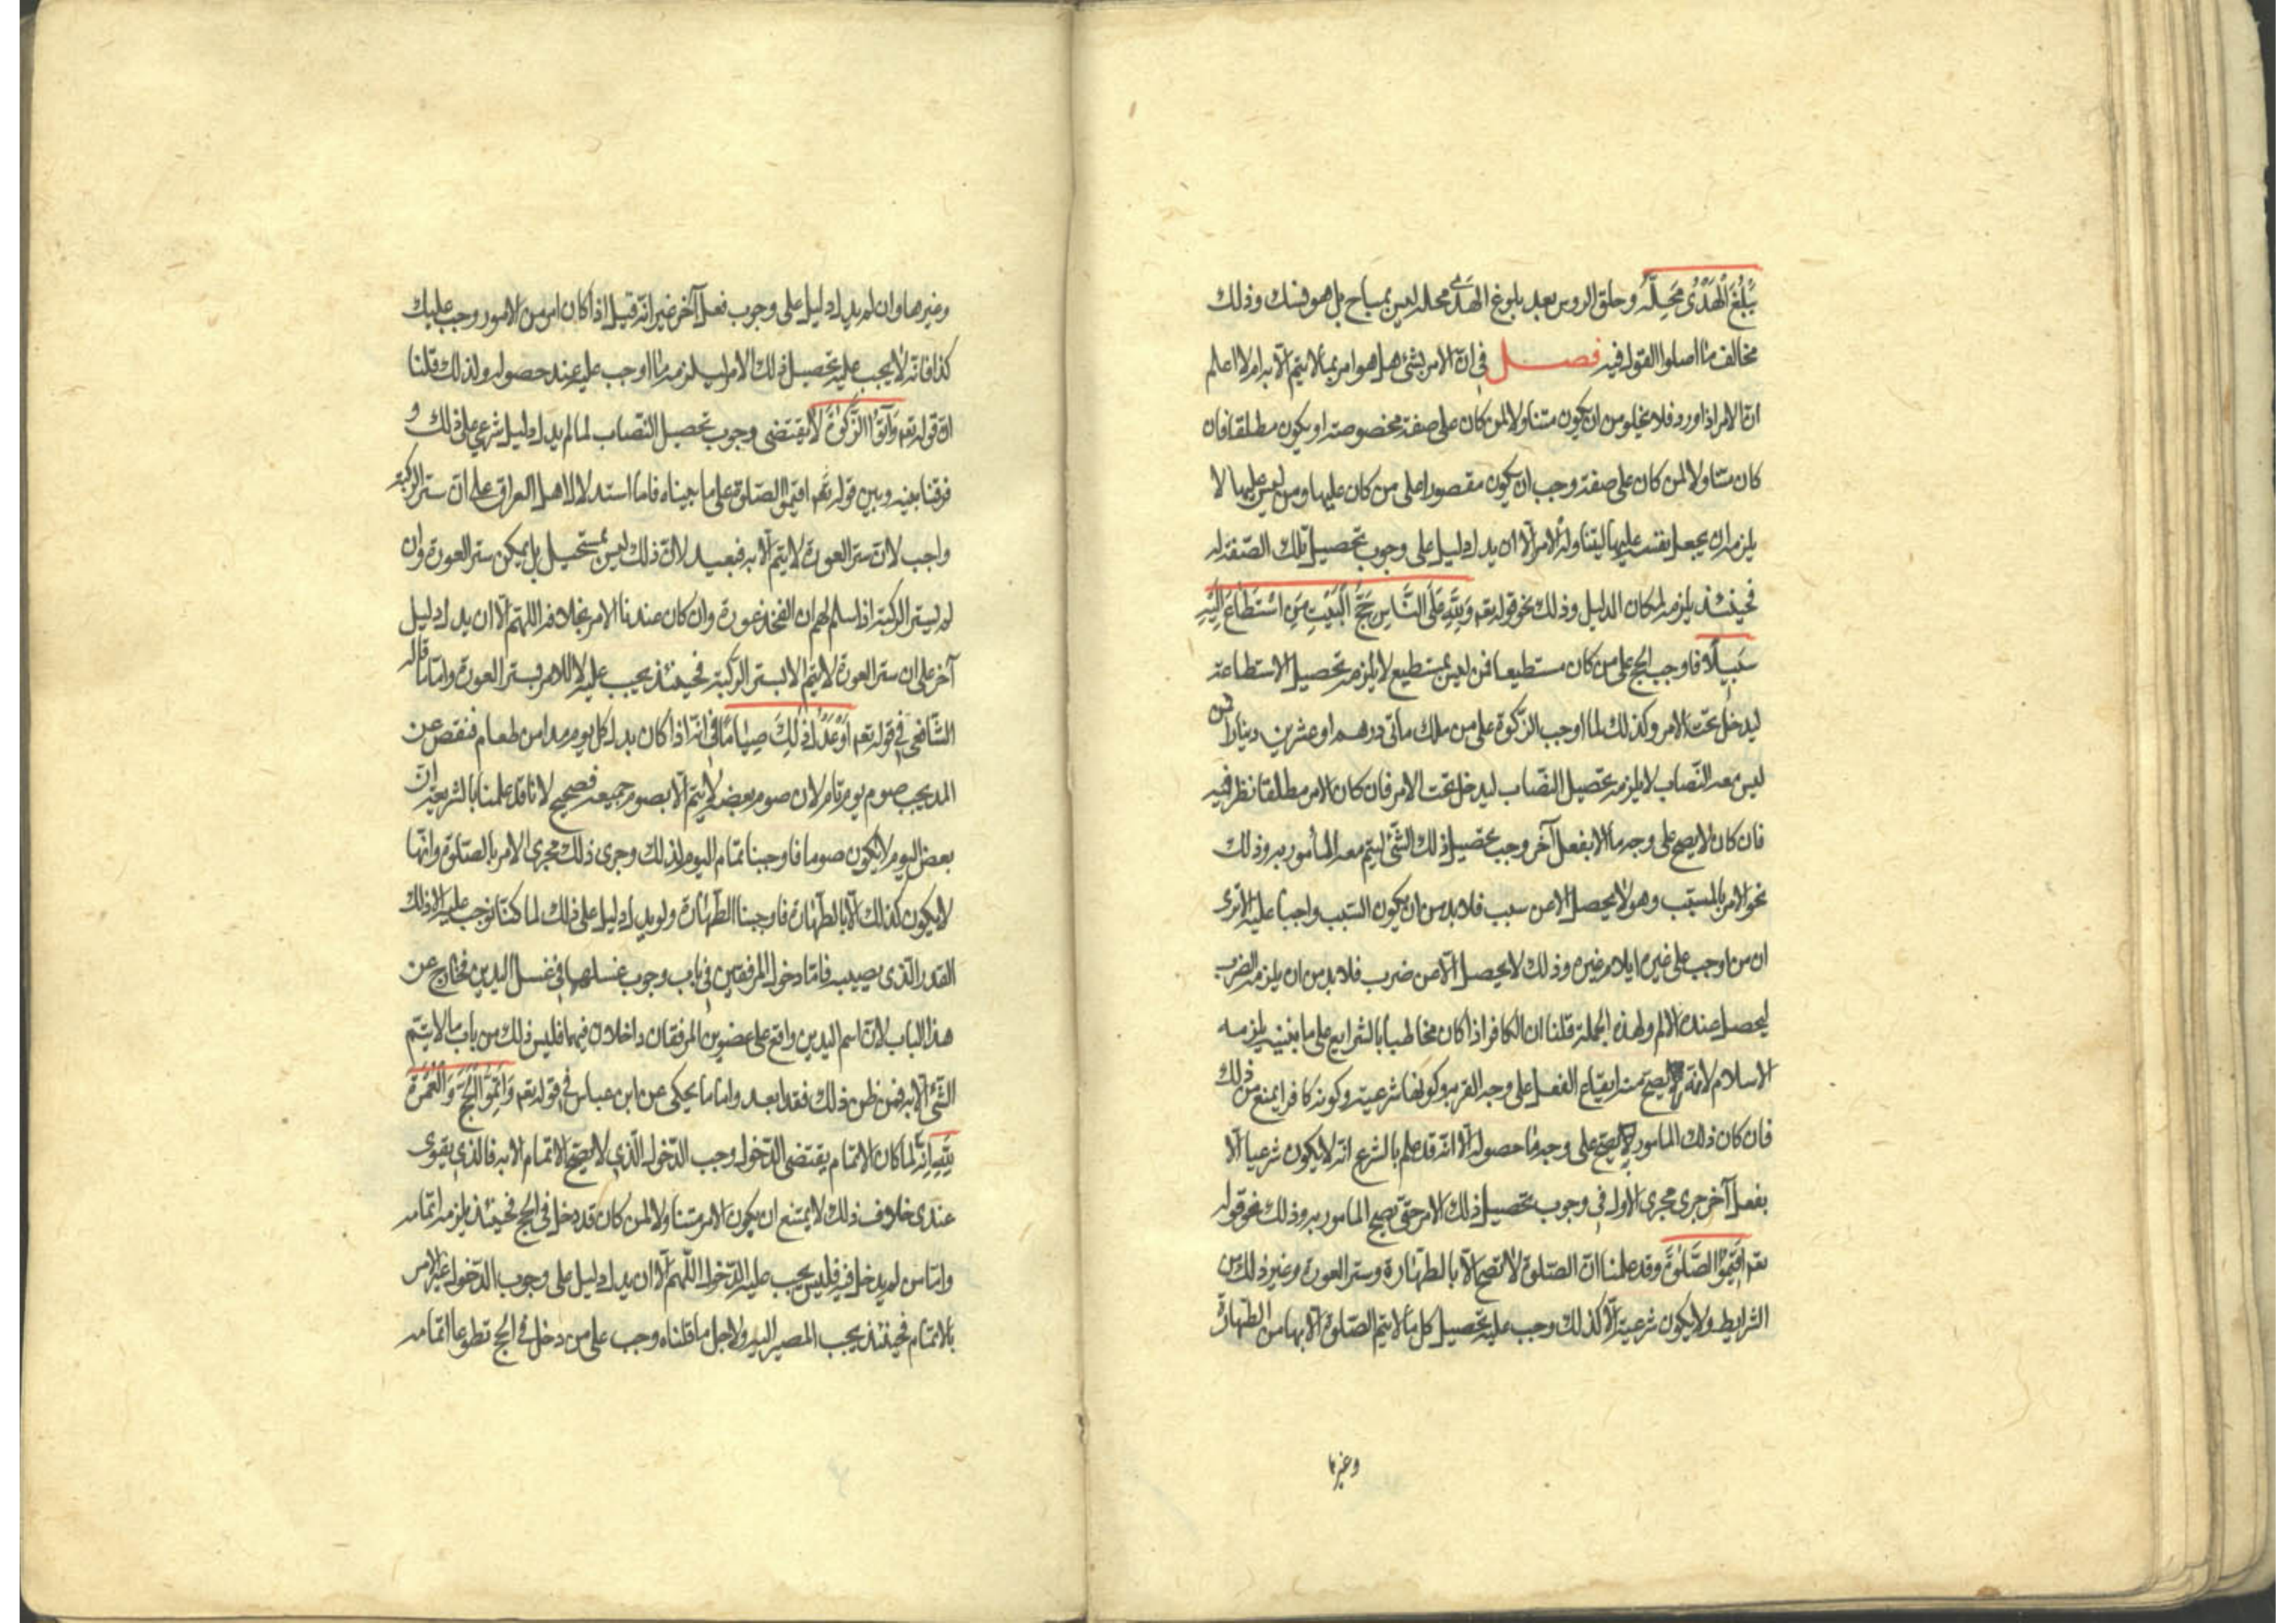 يَبْلُغَ الْهَدْىُ مَحِلَّهُ وحلق الروس بعد بلوغ الهَدْى محله ليس بمباح بل هو نسك وذلك
مخالف ما اصلوا القول فيه فصل في ان الامر بشئ هل هو امر بما لا يتم الا به ام لا اعلم
ان الامر اذا ورد فلا يخلو من ان يكون متناولا لمن كان على صفة مخصوصة او يكون مطلقا فان
كان متناولا لمن كان على صفة وجب ان يكون مقصورا على من كان عليها ومن ليس عليها لا
يلزمه ان يجعل نفسه عليها ليتناوله الامر الا ان يدل دليل على وجوب تحصيل تلك الصفة له
فحينئذ يلزمه لمكان الدليل وذلك نحو قوله تعم وَلِلَّهِ عَلَى النَّاسِ حِجُّ الْبَيْتِ مَنِ اسْتَطَاعَ اِلَيْهِ
سَبِيلًا فاوجب الحج على من كان مستطيعا فمن ليس بمستطيع لا يلزمه تحصيل الاستطاعة
ليدخل تحت الامر وكذلك لما اوجب الزكوة على من ملك مأتى درهم او عشرين دينارا فمن
ليس معه النصاب لا يلزمه تحصيل النصاب ليدخل تحت الامر فان كان الامر مطلقا نظر فيه
فان كان لا يصح على وجه ما الا بفعل آخر وجب تحصيل ذلك الشئ ليتم معه المأمور به وذلك
نحو الامر بالمسبب وهو لا يحصل الا عن سبب فلا بد من ان يكون السبب واجبا عليه الا ترى
ان من اوجب على غيره ايلام غيره وذلك لا يحصل الا عن ضرب فلا بد من ان يلزمه الضرب
ليحصل عنده الالم ولهذه الجملة قلنا ان الكافر اذا كان مخاطبا بالشرايع على ما نبينه يلزمه
الاسلام لانه لا يصح منه ايقاع الفعل على وجه القربة وكونها شرعية وكونه كافرا يمنع من ذلك
فان كان ذلك المامور لا يصح على وجه ما حصوله الا انه قد علم بالشرع انه لا يكون شرعيا الا
بفعل آخر جرى مجرى الاول في وجوب تحصيل ذلك الامر حتى يصح المامور به وذلك نحو قوله
تعم اَقِيمُوا الصَّلوةَ وقد علمنا ان الصلوة لا تصح الا بالطهارة وستر العورة وغير ذلك من
الشرايط ولا يكون شرعية الا كذلك وجب عليه تحصيل كل ما لا يتم الصلوة الا بها من الطهارة
وغيرها
وغيرها وان لم يدل دليل على وجوب فعل آخر غير انه قيل اذا كان امر من الامور وجب عليك
كذا فانه لا يجب عليه تحصيل ذلك الامر ليلزمه ما اوجب عليه عند حصوله ولذلك قلنا
ان قوله تعم وَآتُوا الزَّكوةَ لا يقتضى وجوب تحصيل النصاب لما لم يدل دليل شرعي على ذلك و
فرقنا بينه وبين قوله تعم اقيموا الصلوة على ما بيناه فاما استدلال اهل العراق على ان ستر الركبة
واجب لان ستر العورة لا يتم الا به فبعيد لان ذلك ليس بمستحيل بل يمكن ستر العورة وان
لم يستر الركبة اذا سلم لهم ان الفخذ عورة وان كان عندنا الامر بخلافه اللهم الا ان يدل دليل
آخر على ان ستر العورة لا يتم الا بستر الركبة فحينئذ يجب عليه لا للامر بستر العورة واما ما قاله
الشافعي في قوله تعم اَوْ عَدْلُ ذٰلِكَ صِيَامًا في انه اذا كان بدل كل يوم مدا من طعام فنقص عن
المد يجب صوم يوم تام لان صوم بعضه لا يتم الا بصوم جميعه فصحيح لانا قد علمنا بالشريعة ان
بعض اليوم لا يكون صوما فاوجبنا تمام اليوم لذلك وجرى ذلك مجرى الامر بالصلوة وانها
لا يكون كذلك الا بالطهارة فاوجبنا الطهارة ولو يدل دليل على ذلك لما كنا نوجب عليه الا ذلك
القدر الذى يصيبه فاما دخول المرفقين في باب وجوب غسلهما في غسل اليدين فخارج عن
هذا الباب لان اسم اليدين واقع على عضوين المرفقان داخلان فيهما فليس ذلك من باب ما لا يتم
الشئ الا به فمن ظن ذلك فقد ابعد واما ما يحكى عن ابن عباس في قوله تعم وَاَتِمُّوا الْحَجَّ وَالْعُمْرَةَ
لِلَّهِ انه لما كان الاتمام يقتضى الدخول وجب الدخول الذي لا يصح الاتمام الا به فالذي يقوى
عندى خلاف ذلك لا يمتنع ان يكون الامر متناولا لمن كان قد دخل في الحج فحينئذ يلزمه اتمامه
واما من لم يدخل فيه فليس يجب عليه الدخول اللهم الا ان يدل دليل على وجوب الدخول غير الامر
بالاتمام فحينئذ يجب المصير اليه ولاجل ما قلناه وجب على من دخل في الحج تطوعا اتمامه